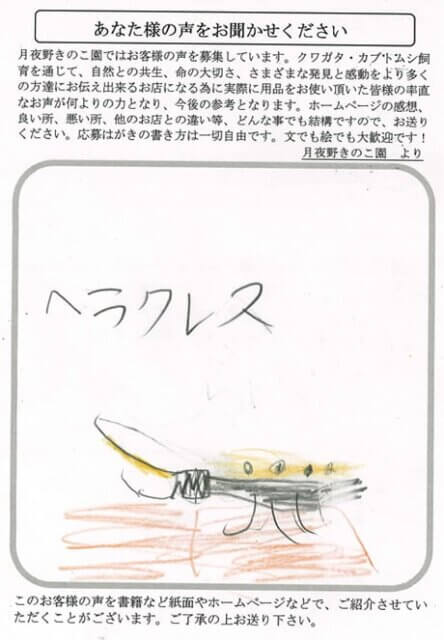 あなた様の声をお聞かせください
月夜野きのこ園ではお客様の声を募集しています。クワガタ・カブトムシ飼
育を通じて、自然との共生、命の大切さ、さまざまな発見と感動をより多く
の方達にお伝え出来るお店になる為に実際に用品をお使い頂いた皆様の率直
なお声が何よりの力となり、今後の参考となります。ホームページの感想、
良い所、悪い所、他のお店との違い等、どんな事でも結構ですので、お送り
ください。応募はがきの書き方は一切自由です。文でも絵でも大歓迎です！
月夜野きのこ園　より
ヘラクレス
このお客様の声を書籍など紙面やホームページなどで、ご紹介させてい
ただくことがございます。ご了承の上お送り下さい。